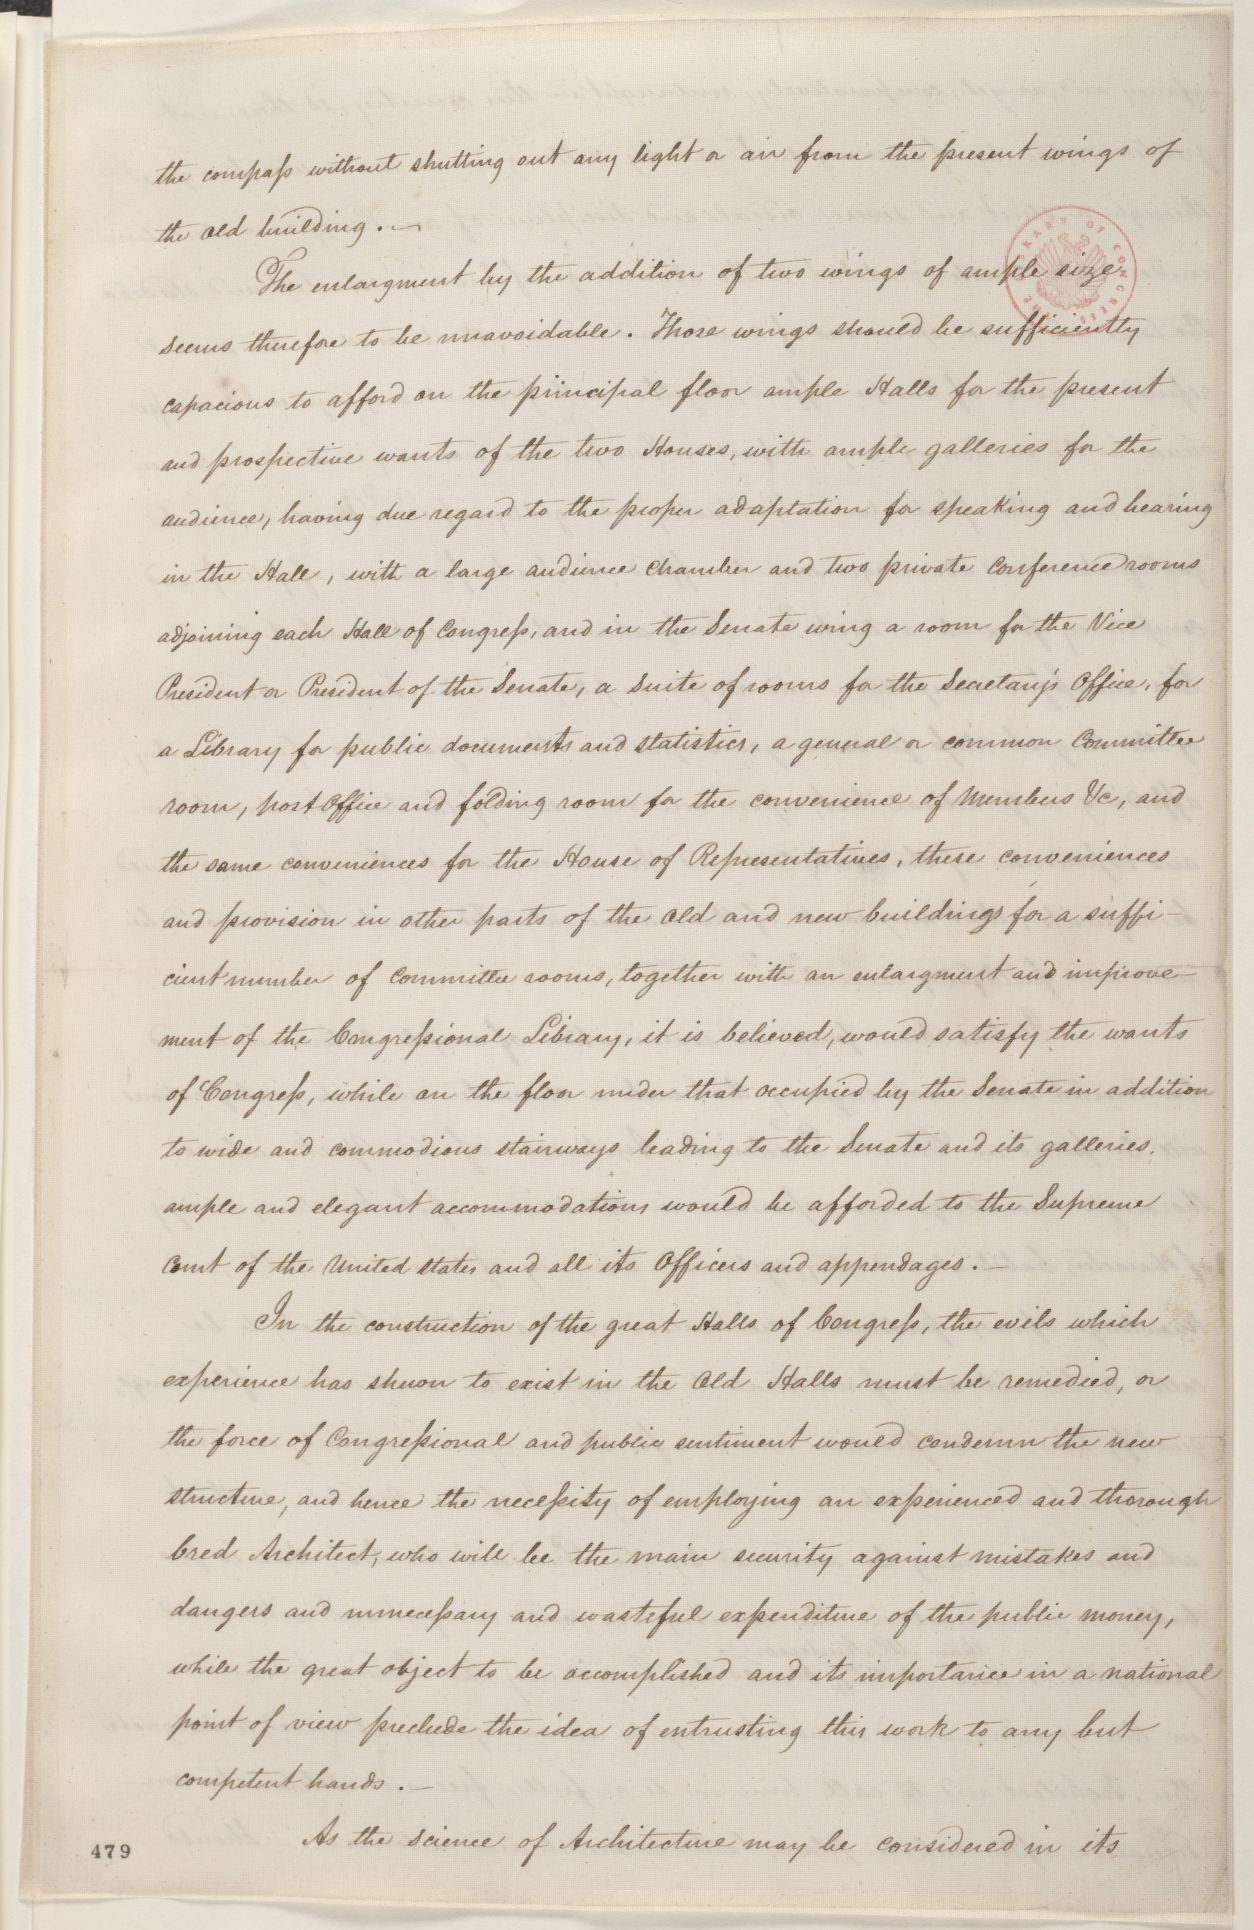 the compass without shutting out any light or air from the present wings of
the old building. —
The enlargment by the addition of two wings of ample size
seems therefore to be unavoidable. Those wings should be sufficiently
capacious to afford on the principal floor ample Halls for the present
and prospective wants of the two Houses, with ample galleries for the
audience, having due regard to the proper adaptation for speaking and hearing
in the Hall, with a large audience Chamber and two private Conference rooms
adjoining each Hall of Congress, and in the Senate wing a room for the Vice
President or President of the Senate, a suite of rooms for the Secretary's Office, for
a Library for public documents and statistics, a general or common Committee
room, post Office and folding room for the convenience of Members &c, and
the same conveniences for the House of Representatives, these conveniences
and provision in other parts of the old and new buildings for a suffi-
cient number of Committee rooms, together with an enlargment and improve-
ment of the Congressional Library, it is believed, would satisfy the wants
of Congress, while on the floor under that occupied by the Senate in addition
to wide and commodious stairways leading to the Senate and its galleries,
ample and elegant accommodations would be afforded to the Supreme
Court of the United States and all its Officers and appendages. —
In the construction of the great Halls of Congress, the evils which
experience has shewn to exist in the Old Halls must be remedied, or
the force of Congressional and public sentiment would condemn the new
structure, and hence the necessity of employing an experienced and thorough
bred Architect, who will be the main security against mistakes and
dangers and unnecessary and wasteful expenditure of the public money,
while the great object to be accomplished and its importance in a national
point of view preclude the idea of entrusting this work to any but
competent hands. —
As the science of Architecture may be considered in its
479
THE LIBRARY OF CONGRESS